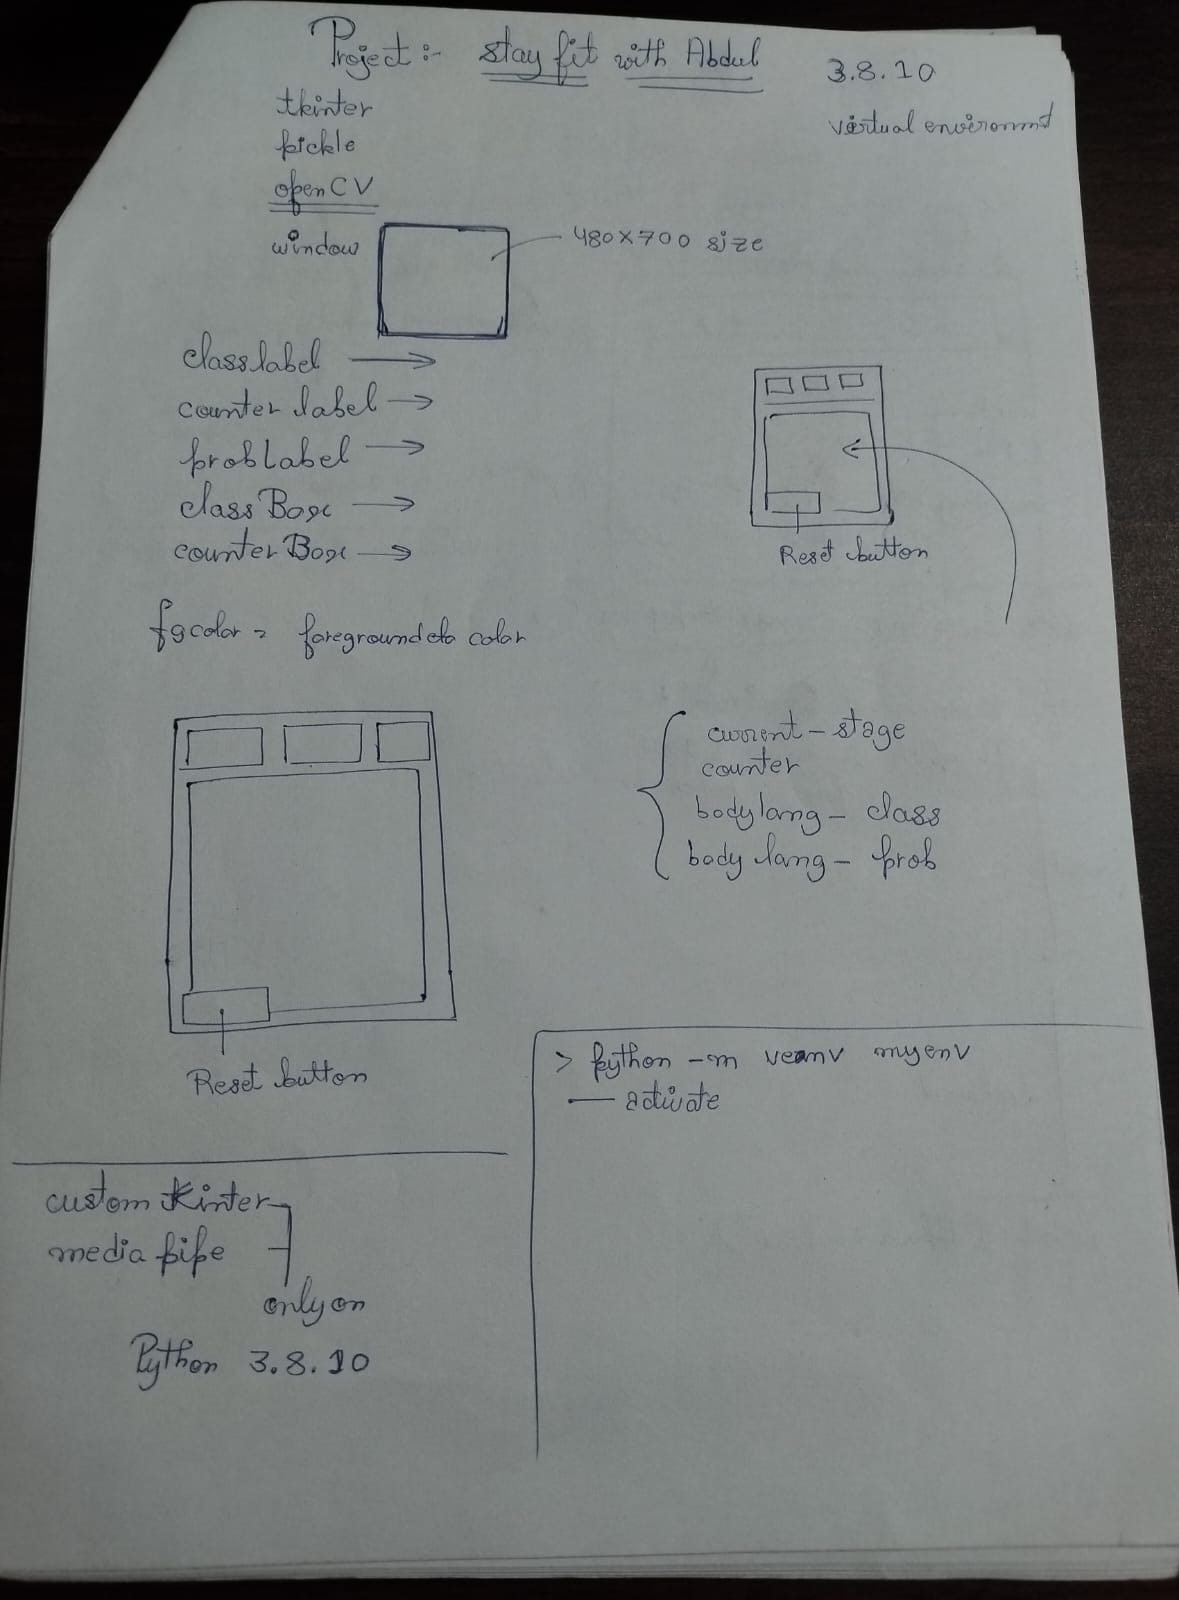 Project :- stay fit with Abdul
3.8.10
virtual environmt
tkinter
pickle
openCV
window
480x700 size
classlabel →
counter label →
probLabel →
class Box →
counter Box →
Reset button
fgcolor = foreground color
current - stage
counter
bodylang - class
body lang - prob
Reset button
> python -m venv myenv
— activate
custom tkinter
media pipe
only on
Python 3.8.10